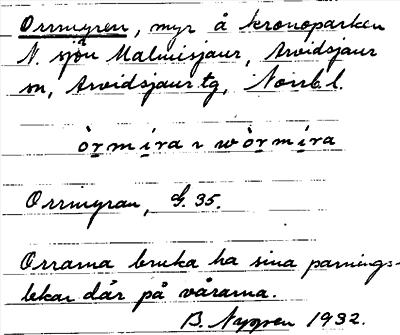 Orrmyren, myr å kronoparken
N. sjön Malmisjaur, Arvidsjaur
sn, Arvidsjaur tg, Norrb. l.
òrmíra ı wòrmíra
Orrmyran, G. 35.
Orrarna bruka ha sina parnings-
lekar där på vårarna.
B. Nygren 1932.